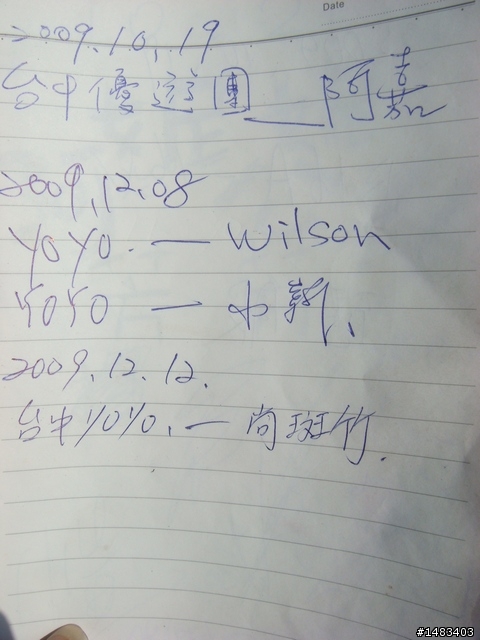 Date
2009.10.19
台中優遊團__阿嘉
2009.12.08
YOYO.—Wilson
YOYO — 小新、
2009.12.12.
台中YOYO.—尚斑竹.
#1483403